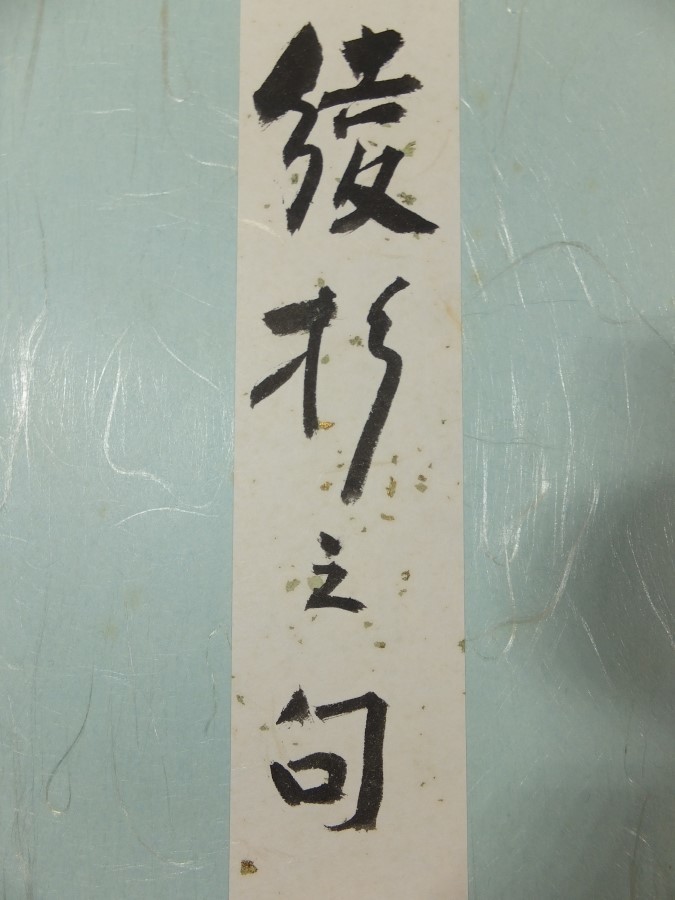 綾杉之句